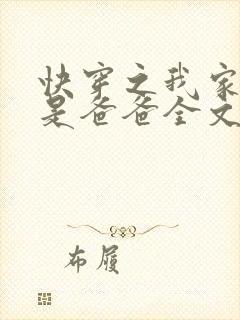 快穿之我家
是爸爸全文
布履